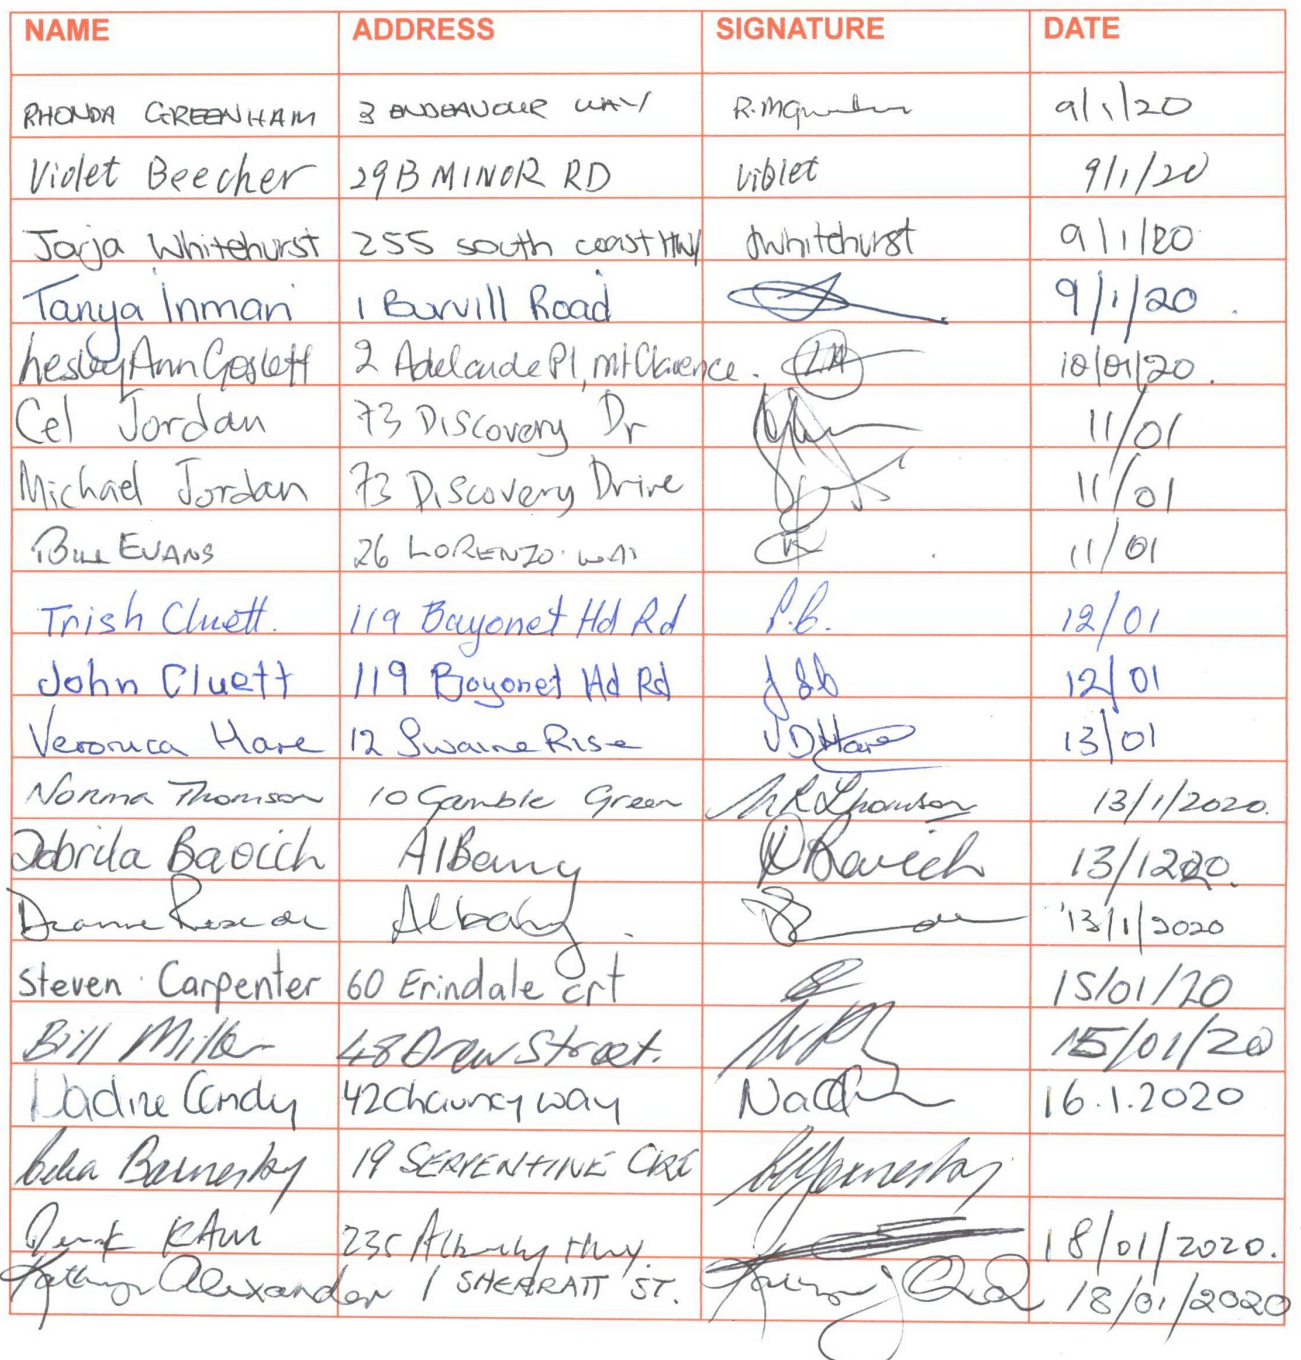 NAME ADDRESS SIGNATURE DATE
RHONDA GREENHAM 3 ENDEAVOUR WAY 9/1/20
Violet Beecher 29B MINOR RD Violet 9/1/20
Jarja Whitehurst 255 south coast HWY Jwhitehurst 9/1/20
Tanya Inman 1 Burvill Road 9/1/20.
Lesley Ann Goslett 2 Adelaide Pl, Mt Clarence. 10/01/20.
Cel Jordan 73 Discovery Dr 11/01
Michael Jordan 73 Discovery Drive 11/01
EVANS 26 LORENZO WAY 11/01
Trish Cluett. 119 Bayonet Hd Rd 12/01
John Cluett 119 Bayonet Hd Rd 12/01
Veronica Hare 12 Swaine Rise VDHare 13/01
Norma Thomson 10 Gamble Green Thomson 13/1/2020.
Dobrila Bavich AlBany DBavich 13/1220.
Deanne Albany. 13/1/2020
Steven Carpenter 60 Erindale crt 15/01/20
Bill Miller 48 Drew Street. 15/01/20
Nadine Candy 42 Chauncy way 16.1.2020
19 SERPENTINE CRE
235 Albany Hwy. 18/01/2020.
Kathryn Alexander 1 SHERRATT ST. 18/01/2020